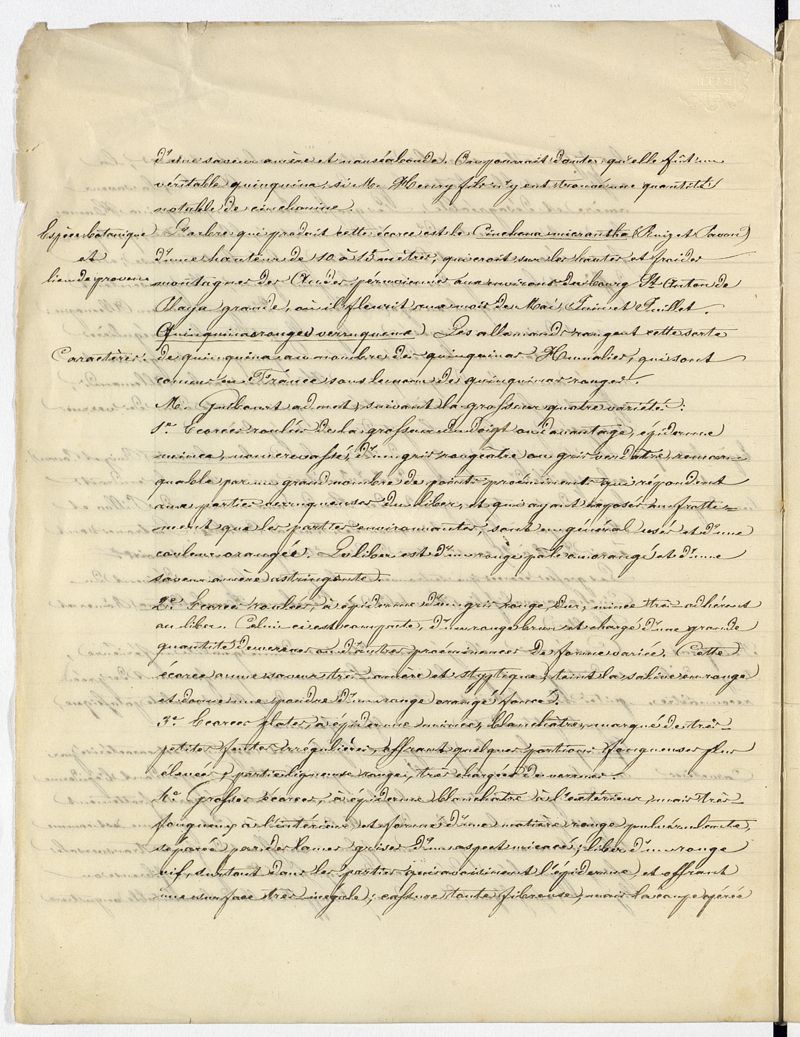 d'une saveur amère et nauséabonde. On pourrait douter qu'elle fût un
véritable quinquina, si M. Henry fils n'y eut trouvé une quantité
notable de cinchonine.
Espèce botanique
et
lieu de proven
L'arbre qui produit cette écorce est le Cinchona micrantha (Ruiz et Pavon)
d'une hauteur de 10 à 15 mètres; qui croît sur les hautes et froides
montagnes des Andes péruviennes aux environs du bourg St Anton de
Playa grande, où il fleurit aux mois de Mai, Juin et Juillet.
Quinquina rouge verruqueux) Les allemands rangent cette sorte
Caractères.
de quinquina au nombre des quinquinas Humalies, qui sont
connus en France sous le nom de quinquinas rouges.
M. Guibourt admet, suivant la grosseur quatre variétés:
1re Ecorces roulées de la grosseur du doigt ou davantage, épiderme
mince, non crevassé, d'un gris rougeâtre ou gris verdâtre, remar-
quable par un grand nombre de points proéminents qui répondent
aux parties verruqueuses du liber, et qui ayant exposés au frotte-
ment que les parties environnantes, sont en général usés et d'une
couleur orangée. Le liber est d'un rouge pâle ou orangé et d'une
saveur amère astringente).
2e Ecorces roulées, à épiderme d'un gris rouge, dur, mince très-adhérent
au liber. Celui ci est compacte, d'un rouge brun et chargé d'une grande
quantité de verrues ou d'autres proéminences de forme variée. Cette
écorce a une saveur très-amère et styptique, teint la salive en rouge
et donne une poudre d'un rouge orangé foncé.
3e Ecorces plates, à épiderme mince, blanchâtre, marqué de très-
petites fentes irrégulières, offrant quelques portions fongueuses plus
élevées, partie ligneuse rouge, très chargées de verrues.
4e Grosses écorces, à épiderme blanchâtre à l'extérieur, mais très-
fongueux à l'intérieur et formé d'une matière rouge pulvérulente,
séparée par des lames grises d'un aspect micacé; liber d'un rouge
vif, surtout dans les parties qui avoisinent l'épiderme et offrant
une surface très inégale; cassure toute fibreuse, mais la coupe opérée